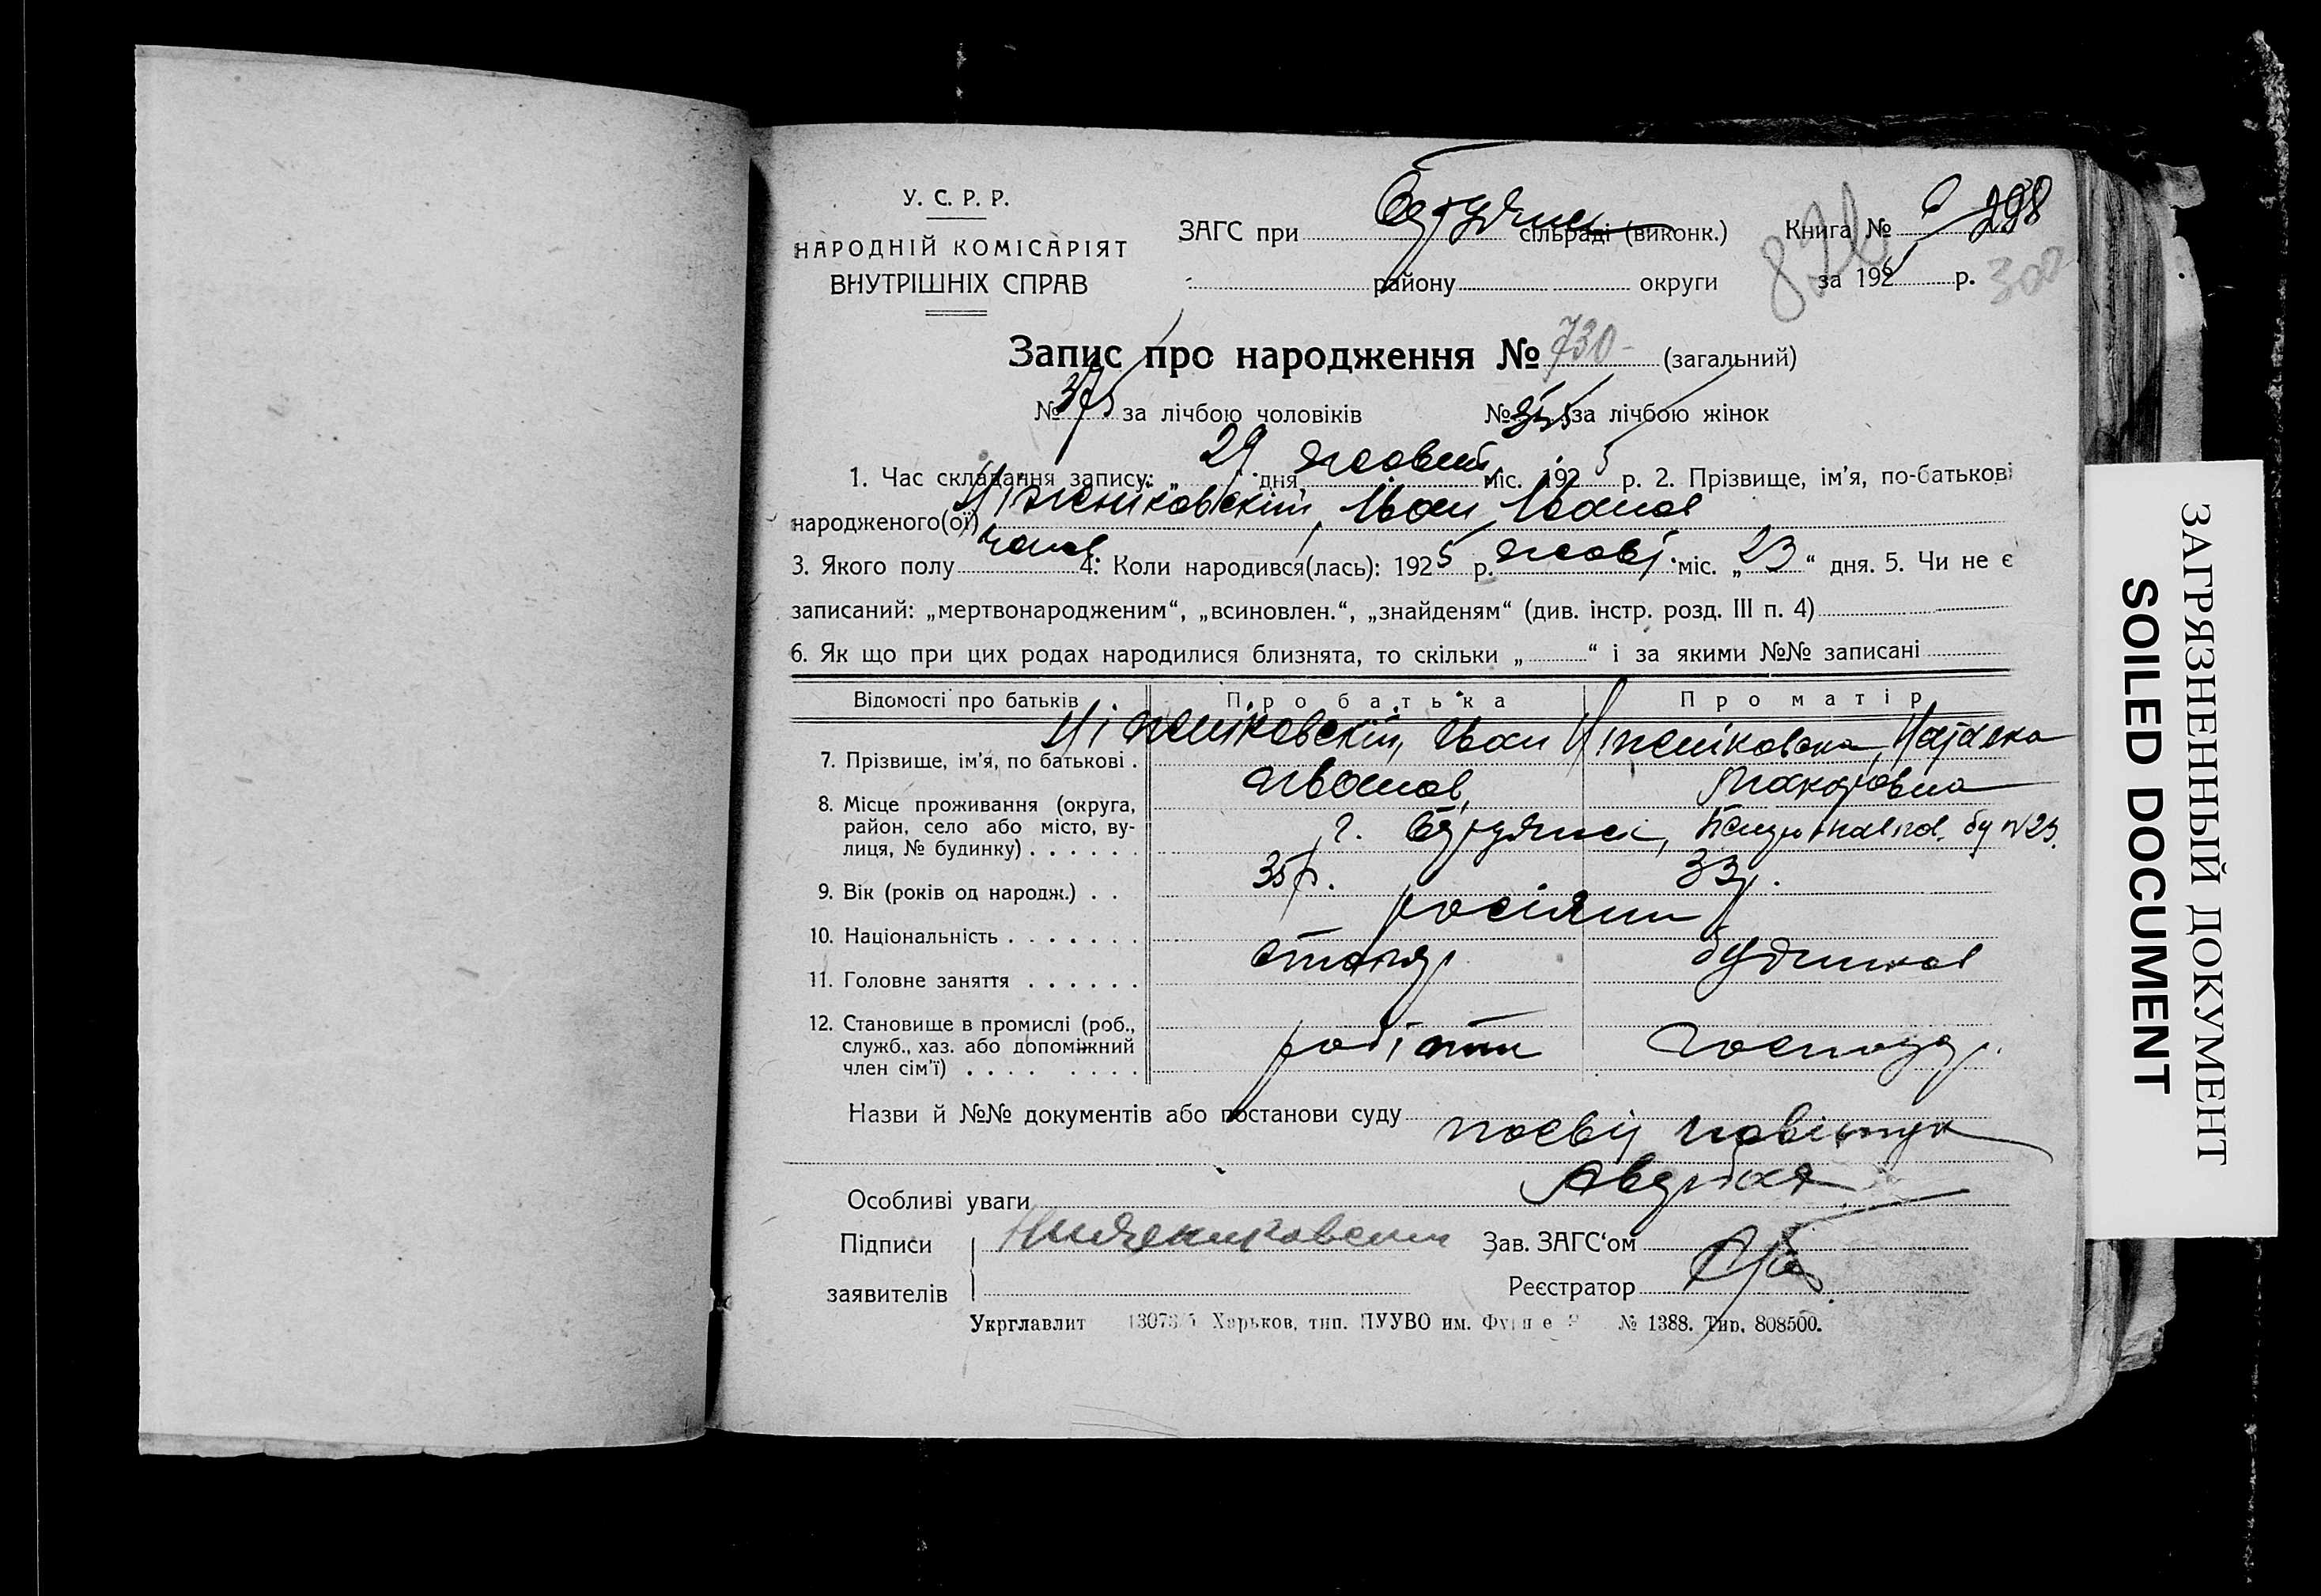 У. С. Р. Р.
НАРОДНІЙ КОМІСАРІЯТ
ВНУТРІШНІХ СПРАВ
ЗАГС при сільраді (виконк.)
району округи
Книга № 298
826
за 1925 р. 300
Запис про народження № 730 (загальний)
№ 375 за лічбою чоловіків № за лічбою жінок
1. Час складання запису: „29 дня жовтн міс. 1925 р. 2. Прізвище, ім'я, по-батькові
народженого(ої) Ніжніковскій, Иван Иванов
3. Якого полу чолов 4. Коли народився(лась): 1925 р. жовт. міс. „23“ дня. 5. Чи не є
записаний: „мертвонародженим“, „всиновлен.“, „знайденям“ (див. інстр. розд. III п. 4)
6. Як що при цих родах народилися близнята, то скільки „ “ і за якими №№ записані
Відомості про батьків Про батька Про матір
7. Прізвище, ім'я, по батькові . Ніжніковскій, Иван Иванов, Ніжніковска, Наталка Макаровна
8. Місце проживання (округа, район, село або місто, вулиця, № будинку) . . . . . . г. бу №23.
9. Вік (років од народж.) . . 35 р. 33 р.
10. Національність . . . . . . . росіяни
11. Головне заняття . . . . . . столяр
12. Становище в промислі (роб., служб., хаз. або допоміжний член сім'ї) . . . . . . . . робітн господар.
Назви й №№ документів або постанови суду посвід повітух
Особливі уваги
Підписи Нижниковский Зав. ЗАГС'ом
заявителів Реєстратор
Укрглавлит Харьков, тип. ПУУВО им. Фрунзе № 1388. Тир. 808500.
ЗАГРЯЗНЕННЫЙ ДОКУМЕНТ
SOILED DOCUMENT